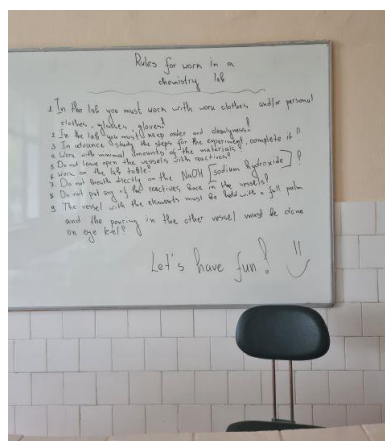 Rules for work in a
chemistry lab
1 In the lab you must work with work clothes and/or personal
clothes, glasses, gloves!
2 In the lab you must keep order and cleaniness!
3 In advance study the steps for the experiment, complete it !!
4 Work with minimal amounts of the materials!
5 Do not leave open the vessels with reactives!
6 Work on the lab table!
7 Do not breath directly on the NaOH [sodium hydroxide] !
8 Do not put any of the reactives back in the vessels!
9 The vessel with the elements must be held with a full palm
and the pouring in the other vessel must be done
on eye level!
Let's have fun! :)